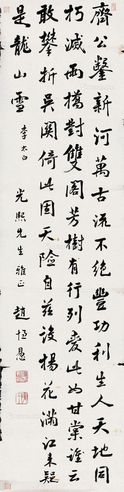 齊公鑿新河萬古流不絕豐功利生人天地同
朽滅兩橋對雙閣芳樹有行列愛此如甘棠誰云
敢攀折吳關倚此固天險自茲設楊花滿江來疑
是龍山雪 李太白
光熙先生雅正 趙恆惕